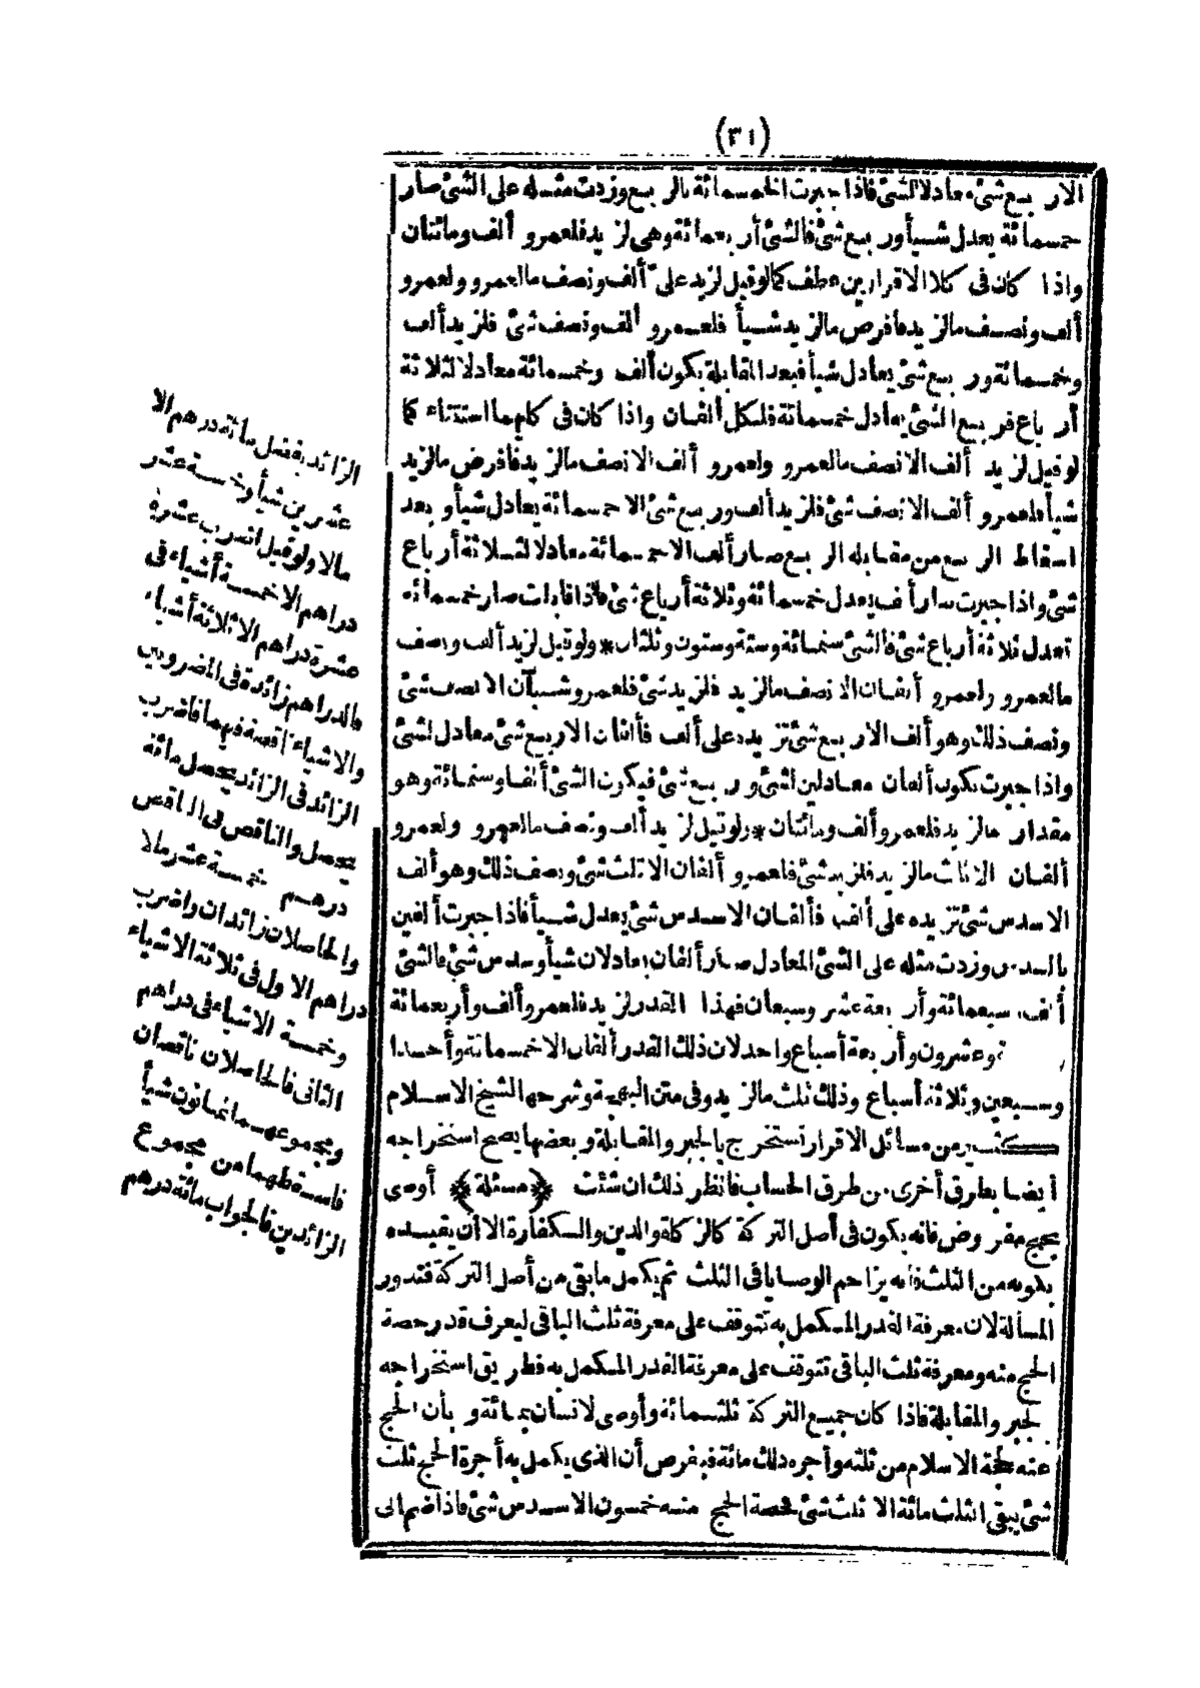 (٣١)
الا ربع شئ معادلا لشئ فاذا جبرت الخمسمائة بالربع وزدت مثله على الشئ صار
خمسمائة يعدل شيأ وربع شئ فالشئ أربعمائة وهى لزيد فلعمرو ألف ومائتان
واذا كان فى كلا الاقرارين عطف كما لو قيل لزيد على ألف ونصف ما لعمرو ولعمرو
ألف ونصف ما لزيد فافرض ما لزيد شيأ فلعمرو ألف ونصف شئ فلزيد ألف
وخمسمائة وربع شئ يعادل شيأ فبعد المقابلة يكون ألف وخمسمائة معادلا لثلاثة
أرباع فربع الشئ يعادل خمسمائة فلكل ألفان واذا كان فى كل منهما استثناء كما
لو قيل لزيد ألف الا نصف ما لعمرو ولعمرو ألف الا نصف ما لزيد فافرض ما لزيد
شيأ فلعمرو ألف الا نصف شئ فلزيد ألف وربع شئ الا خمسمائة يعادل شيأ وبعد
اسقاط الربع من مقابله الربع صار ألف الا خمسمائة معادلا لثلاثة أرباع
شئ واذا جبرت صار ألف يعدل خمسمائة وثلاثة أرباع شئ فاذا قابلت صار خمسمائة
تعدل ثلاثة أرباع شئ فالشئ ستمائة وستة وستون وثلثان * ولو قيل لزيد ألف ونصف
ما لعمرو ولعمرو ألفان الا نصف ما لزيد فلزيد شئ فلعمرو شيآن الا نصف شئ
ونصف ذلك وهو ألف الا ربع شئ تزيده على ألف فألفان الا ربع شئ معادل لشئ
واذا جبرت يكون ألفان معادلين لشئ وربع شئ فيكون الشئ ألفا وستمائة وهو
مقدار ما لزيد فلعمرو ألف ومائتان * ولو قيل لزيد ألف ونصف ما لعمرو ولعمرو
ألفان الا ثلث ما لزيد فلزيد شئ فلعمرو ألفان الا ثلث شئ ونصف ذلك وهو ألف
الا سدس شئ تزيده على ألف فألفان الا سدس شئ يعدل شيأ فاذا جبرت ألفين
بالسدس وزدت مثله على الشئ المعادل صار ألفان يعادلان شيأ وسدس شئ فالشئ
ألف وسبعمائة وأربعة عشر وسبعان فهذا القدر لزيد فلعمرو ألف وأربعمائة
وعشرون وأربعة أسباع واحد لان ذلك القدر ألفان الا خمسمائة وأحدا
وسبعين وثلاثة أسباع وذلك ثلث ما لزيد وفى متن البهجة وشرحها لشيخ الاسلام
كثير من مسائل الاقرار تستخرج بالجبر والمقابلة وبعضها يصح استخراجه
أيضا بطرق أخرى من طرق الحساب فانظر ذلك ان شئت ﴿مسئلة﴾ أوصى
بحج مفروض فانه يكون فى أصل التركة كالزكاة والدين والكفارة الا أن يقيده
بكونه من الثلث فانه يزاحم الوصايا فى الثلث ثم يكمل ما بقى من أصل التركة فتدور
المسألة لان معرفة القدر المكمل به تتوقف على معرفة ثلث الباقى ليعرف قدر حصة
الحج منه ومعرفة ثلث الباقى تتوقف على معرفة القدر المكمل به فطريق استخراجه
لجبر والمقابلة فاذا كان جميع التركة ثلثمائة وأوصى لانسان بمائة وبأن الحج
عنه حجة الاسلام من ثلثه وأجرة ذلك مائة فيفرض أن الذى يكمل به أجرة الحج ثلث
شئ يبقى الثلث مائة الا ثلث شئ فحصة الحج منه خمسون الا سدس شئ فاذا ضم الى
الزائد بفضل مائة درهم الا
عشرين شيأ وخمسة عشر
مالا ولو قيل اضرب عشرة
دراهم الا خمسة أشياء فى
عشرة دراهم الا ثلاثة أشياء
فالدراهم زائدة فى المضروبين
والاشياء ناقصة فيهما فاضرب
الزائد فى الزائد يحصل مائة
درهم
يحصل والناقص فى الناقص
خمسة عشر مالا
والحاصلان زائدان واضرب
دراهم الاول فى ثلاثة الاشياء
وخمسة الاشياء فى دراهم
الثانى فالحاصلان ناقصان
ومجموعهما ثمانون شيأ
فاسقطهما من مجموع
الزائدين فالجواب مائة درهم